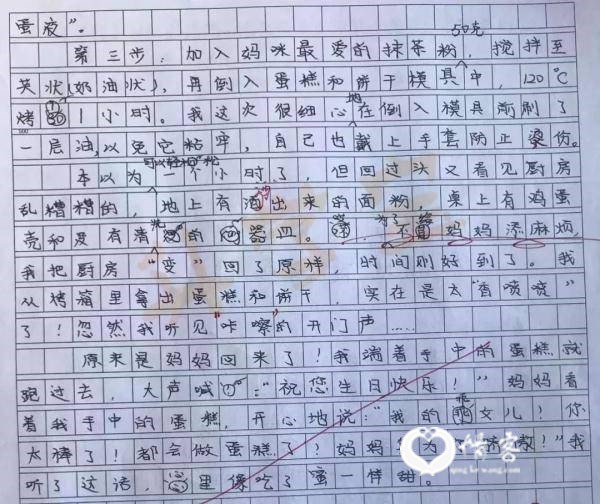 蛋液”。
第三步，加入妈咪最爱的抹茶粉50克，搅拌至
英状(奶油状)，再倒入蛋糕和饼干模具中，120℃
烤1小时。我这次很细心地在倒入模具前刷了
一层油，以免它粘牢，自己也戴上手套防止烫伤。
本以为可以轻松一个小时了，但回过头又看见厨房
乱糟糟的，地上有洒出来的面粉，桌上有鸡蛋
壳和没有清洗的器皿。为了不给妈妈添麻烦，
我把厨房“变”回了原样，时间刚好到了。我
从烤箱里拿出蛋糕和饼干，实在是太“香喷喷”
了！忽然我听见“咔嚓”的开门声……
原来是妈妈回来了！我端着手中的蛋糕就
跑过去，大声喊：“祝您生日快乐！”妈妈看
着我手中的蛋糕，开心地说：“我的乖女儿！你
太棒了！都会做蛋糕了！妈妈为你骄傲！”我
听了这话，心里像吃了蜜一样甜。